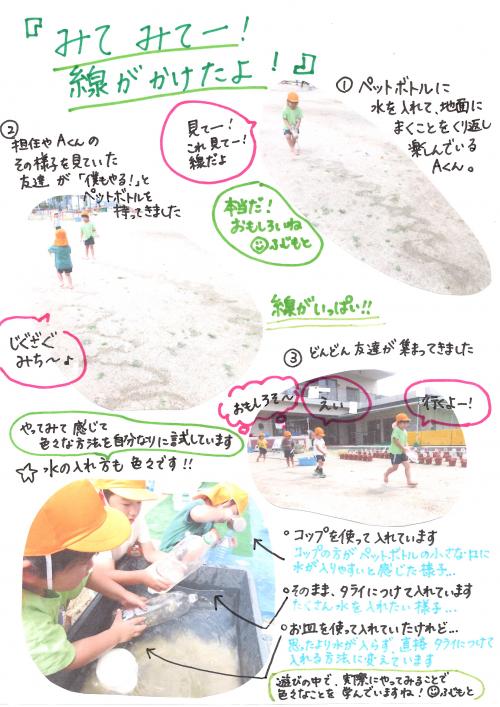 『みて みてー！
線がかけたよ！』
① ペットボトルに
水を入れて、地面に
まくことをくり返し
楽しんでいる
Aくん。
見てー！
これ見てー！
線だよ
② 担任やAくんの
その様子を見ていた
友達が「僕もやる！」と
ペットボトルを
持ってきました
本当だ！
おもしろいね
ふじもと
線がいっぱい!!
じぐざぐ
みち〜♪
③ どんどん友達が集まってきました
おもしろそ〜
えい
行くよー！
やってみて 感じて
色々な方法を自分なりに試しています
☆ 水の入れ方も 色々です!!
○ コップを使って入れています
コップの方がペットボトルの小さな口に
水が入りやすいと感じた様子...
○ そのまま、タライにつけて入れています
たくさん水を入れたい様子...
○ お皿を使って入れていたけれど...
思ったより水が入らず、直接タライにつけて
入れる方法に変えています
遊びの中で、実際にやってみることで
色々なことを学んでいますね！ふじもと